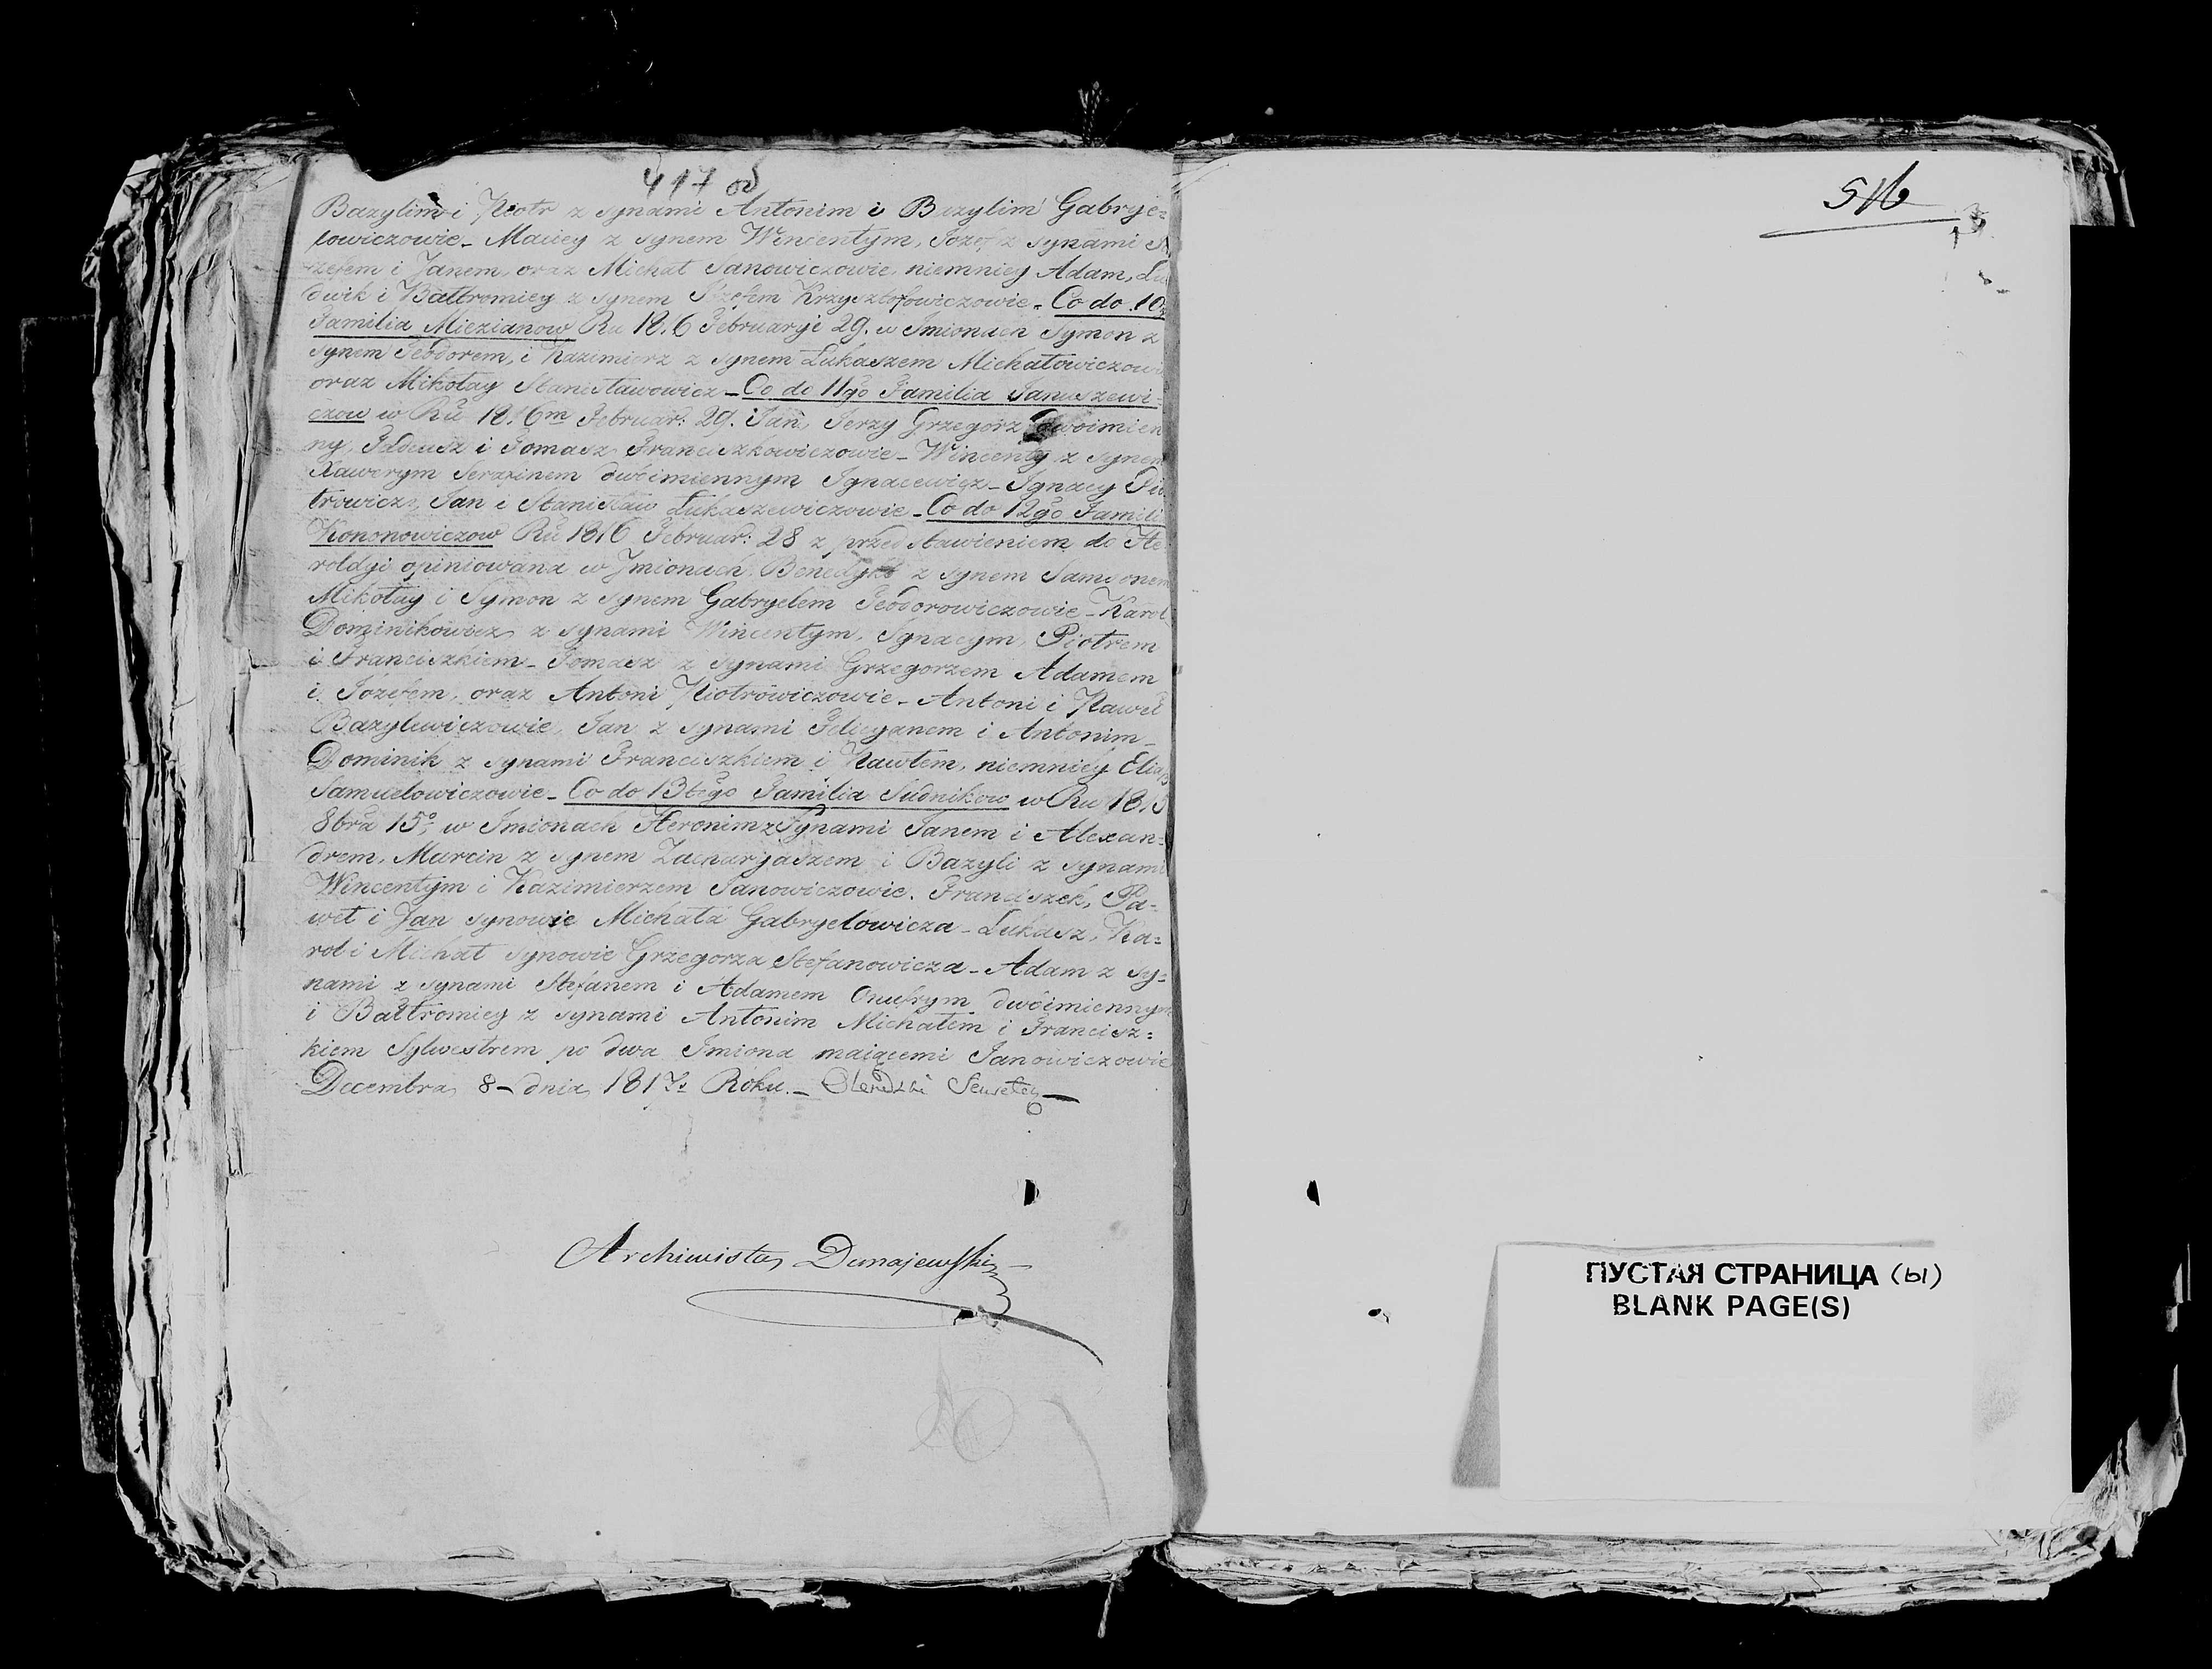 417 od
Bazylim i Piotr z synami Antonim i Bazylim Gabrye=
lowiczowie_ Maciey z synem Wincentym, Jozef z synami
zefem i Janem, oraz Michał Janowiczowie, niemniey Adam, Lu
dwik i Bałtromiey z synem Józefem Krzysztofowiczowie_ Co do 10
Familia Miezianow Ru 1816 Februaryi 29. w Jmionach Symon z
synem Teodorem, i Kazimierz z synem Łukaszem Michałowiczow
oraz Mikołay Stanisławowicz_ Co do 11go Familia Januszewi=
czow w Ru 1816m Februar: 29. Jan, Jerzy Grzegórz dwoimien
ny, Tadeusz i Tomasz Franciszkowiczowie_ Wincenty z synem
Xawerym Serafinem dwóimiennym Jgnacewicz_ Jgnacy Pio
trowicz, Jan i Stanisław Łukaszewiczowie_ Co do 12go Famili
Kononowiczow Ru 1816 Februar: 28 z przedstawieniem do He
roldyi opiniowana w Jmionach Benedykt z synem Samsonem
Mikołay i Symon z synem Gabryelem Teodorowiczowie_ Karol
Dominikowicz z synami Wincentym, Jgnacym, Piotrem
i Franciszkiem_ Tomasz z synami Grzegorzem Adamem
i Józefem, oraz Antoni Piotrówiczowie_ Antoni i Paweł
Bazylewiczowie, Jan z synami Felicyanem i Antonim_
Dominik z synami Franciszkiem i Pawłem, niemniey Eliasz
Samuelowiczowie_ Co do 13tego Familia Sudnikow w Ru 1815
8bra 15o w Jmionach Heronim z Synami Janem i Alexan=
drem, Marcin z synem Zacharyaszem i Bazyli z synami
Wincentym i Kazimierzem Janowiczowie. Franciszek, Pa=
weł i Jan synowie Michała Gabryelowicza_ Łukasz, Ka=
rol i Michał synowie Grzegorza Stefanowicza_ Adam z sy=
nami z synami Stefanem i Adamem Onufrym dwóimiennym
i Bałtromiey z synami Antonim Michałem i Francisz=
kiem Sylwestrem po dwa Jmiona maiącemi Janowiczowie
Decembra 8_ dnia 1817. Roku._
Archiwista Dunajewski
516
ПУСТАЯ СТРАНИЦА (Ы)
BLANK PAGE(S)